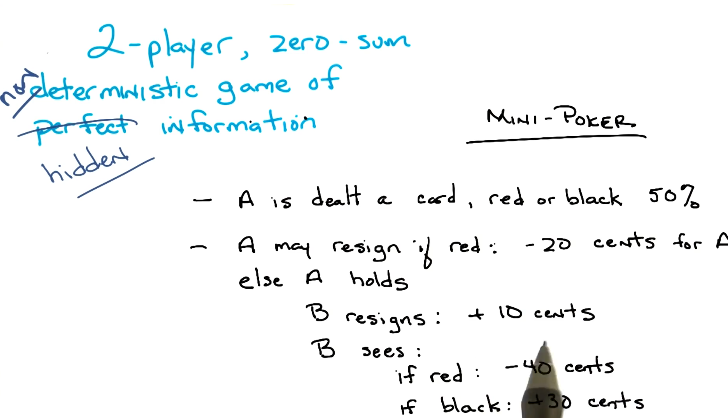 2-player, zero-sum
non deterministic game of
perfect information
hidden
MINI-POKER
- A is dealt a card, red or black 50%
- A may resign if red: -20 cents for A
else A holds
B resigns: +10 cents
B sees:
if red: -40 cents
if black: +30 cents